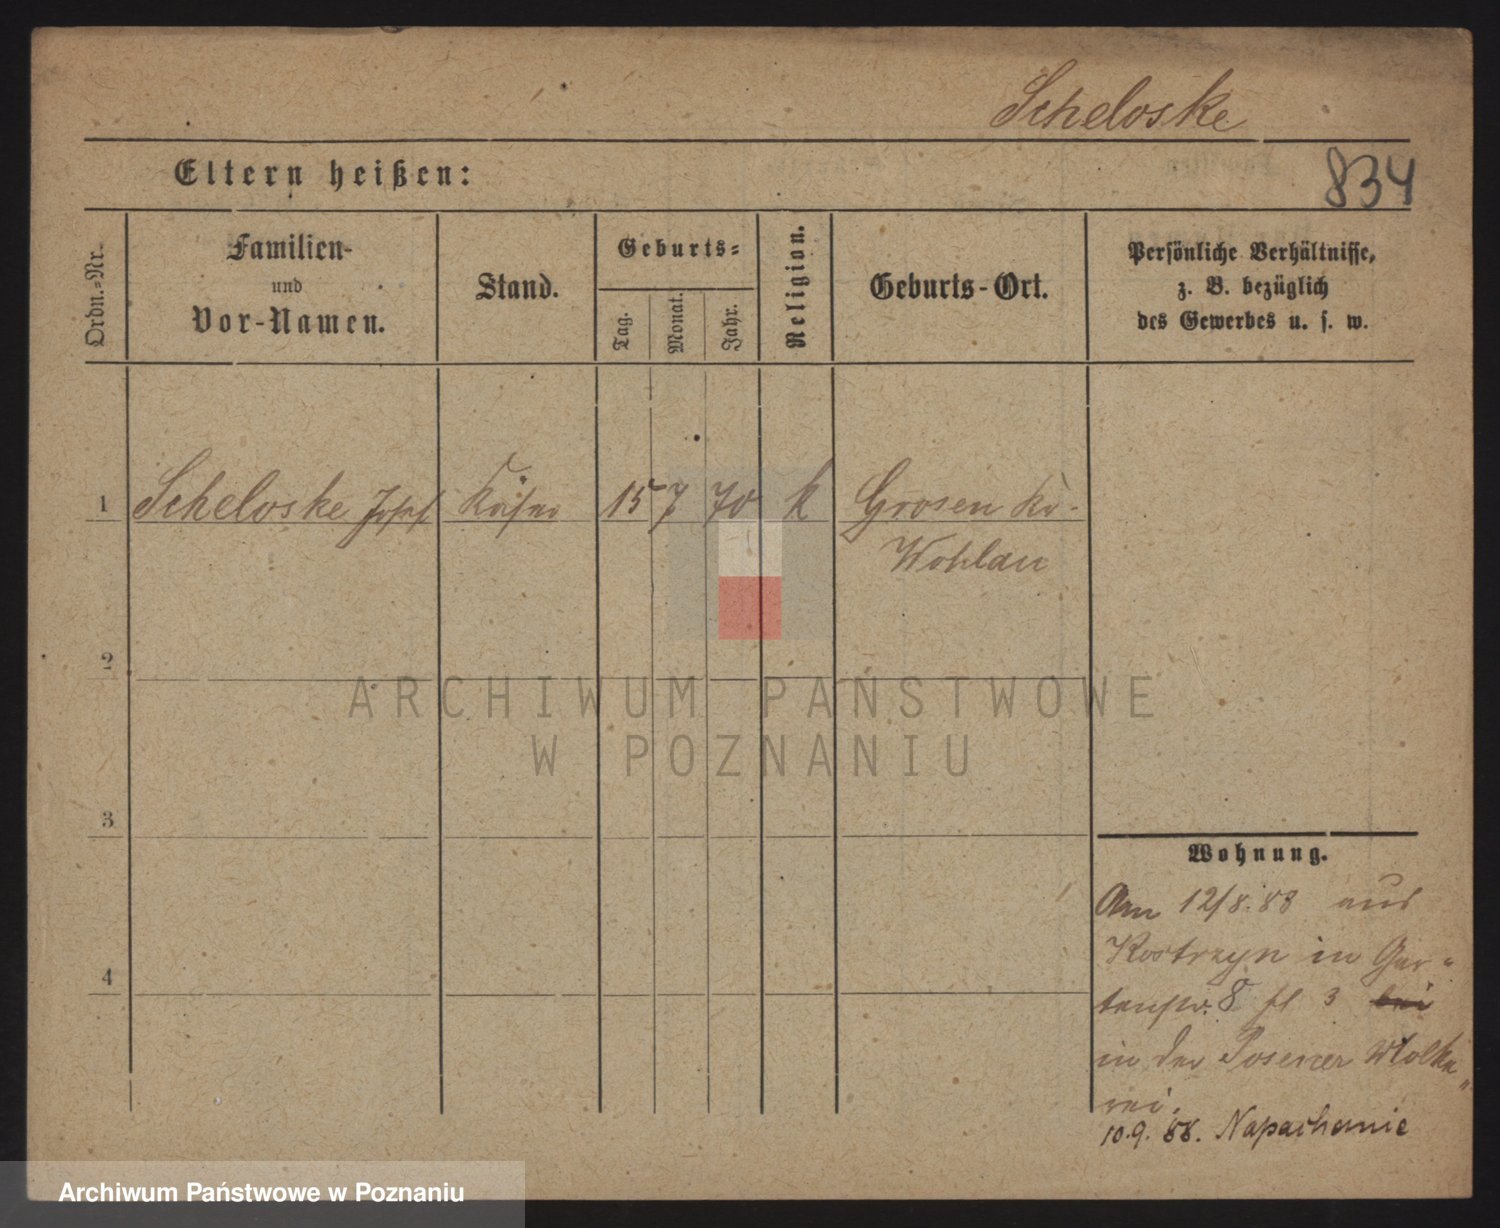 Scheloske
834
Eltern heißen:
Ordn.-Nr.
Familien-
und
Vor-Namen.
Stand.
Geburts-
Tag.
Monat.
Jahr.
Religion.
Geburts-Ort.
Persönliche Verhältnisse,
z. B. bezüglich
des Gewerbes u. s. w.
1 Scheloske Josef Käser 15 7 70 k Grosen Kr.
Wohlau
2
3
4
Wohnung.
Am 12/8. 88 aus
Kostrzyn in Gar-
tenstr. 8 3 bei
in der Posener Molke
rei.
10.9. 88. Napachanie
ARCHIWUM PAŃSTWOWE
W POZNANIU
Archiwum Państwowe w Poznaniu